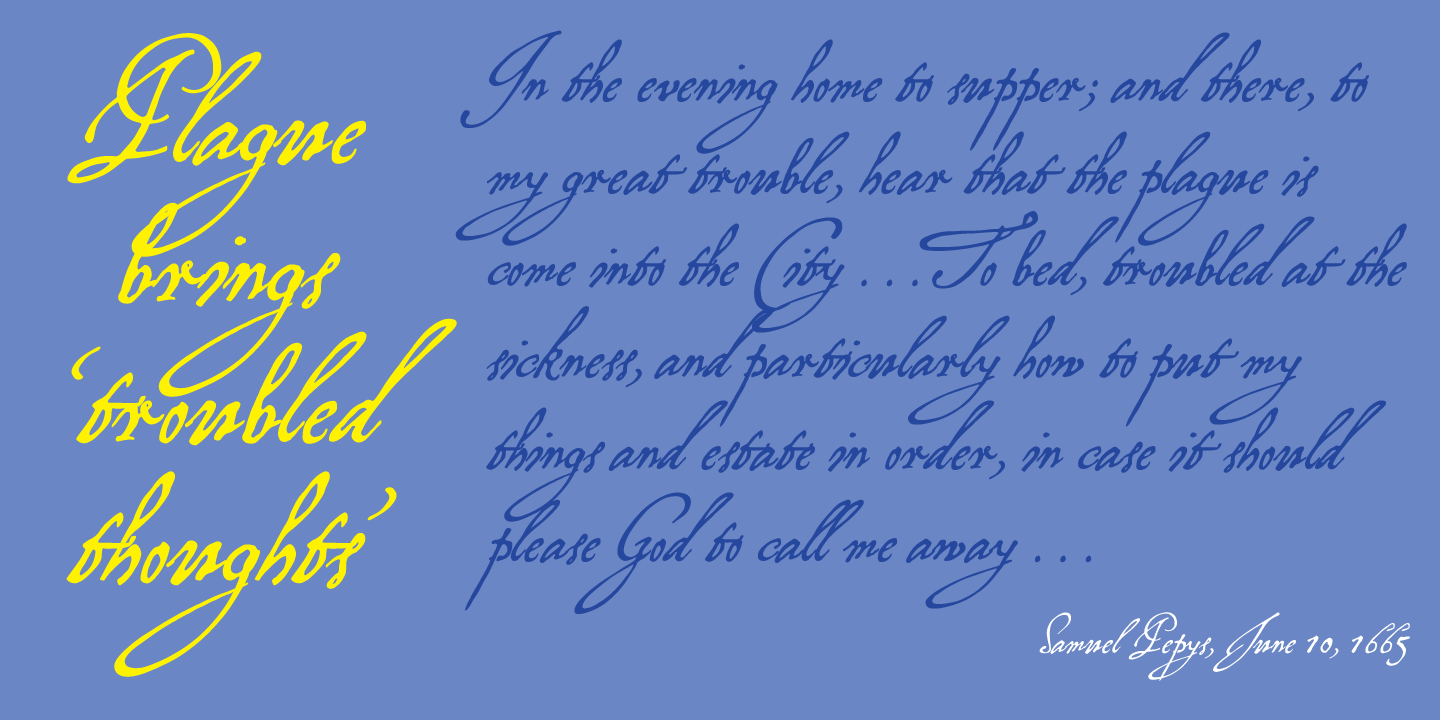 Plague
brings
‘troubled
thoughts’
In the evening home to supper; and there, to
my great trouble, hear that the plague is
come into the City . . . To bed, troubled at the
sickness, and particularly how to put my
things and estate in order, in case it should
please God to call me away . . .
Samuel Pepys, June 10, 1665